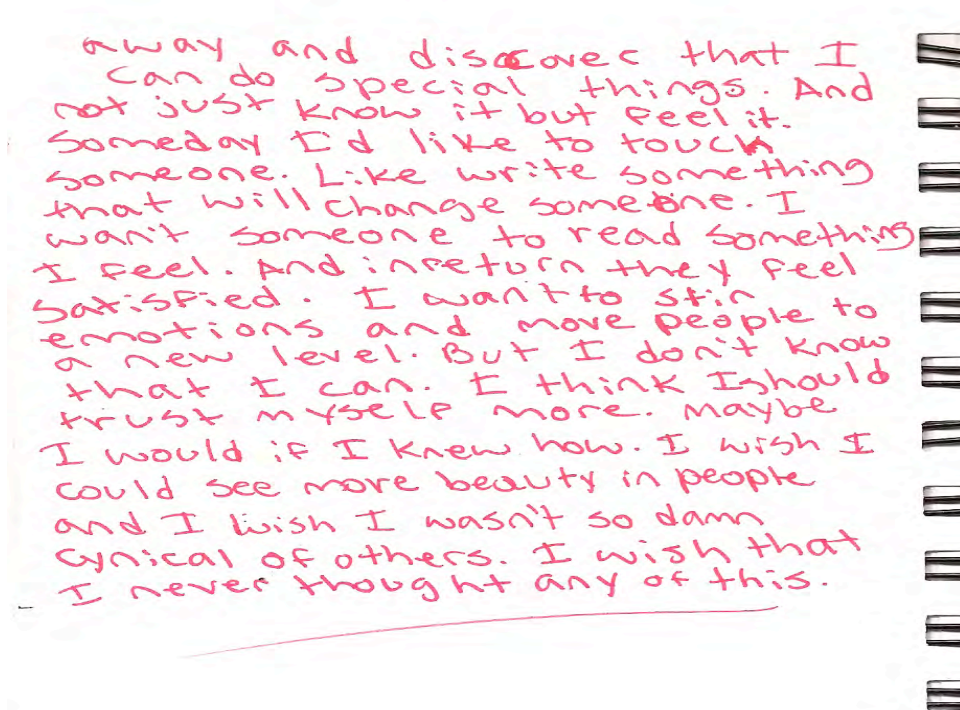 away and discover that I
can do special things. And
not just know it but feel it.
Someday I'd like to touch
someone. Like write something
that will change someone. I
want someone to read something
I feel. And inreturn they feel
satisfied. I want to stir
emotions and move people to
a new level. But I don't know
that I can. I think I should
trust myself more. Maybe
I would if I knew how. I wish I
could see more beauty in people
and I wish I wasn't so damn
cynical of others. I wish that
I never thought any of this.